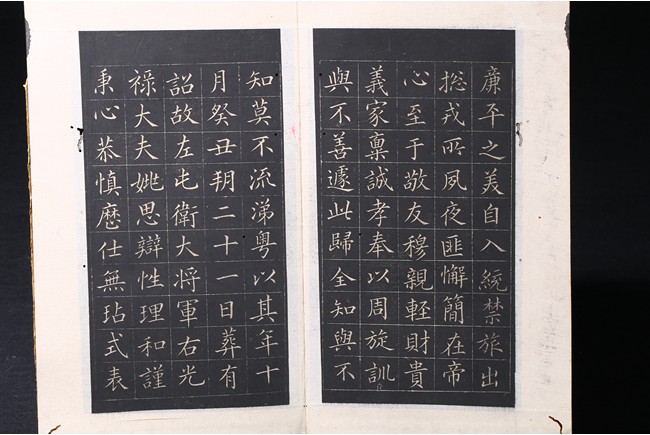 廉平之美自入統禁旅出
捴戎所夙夜匪懈簡在帝
心至于敬友穆親輕財貴
義家稟誠孝奉以周旋訓
與不善遽此歸全知與不
知莫不流涕粵以其年十
月癸丑朔二十一日葬有
詔故左屯衛大将軍右光
禄大夫姚思辯性理和謹
秉心恭慎歷仕無玷式表